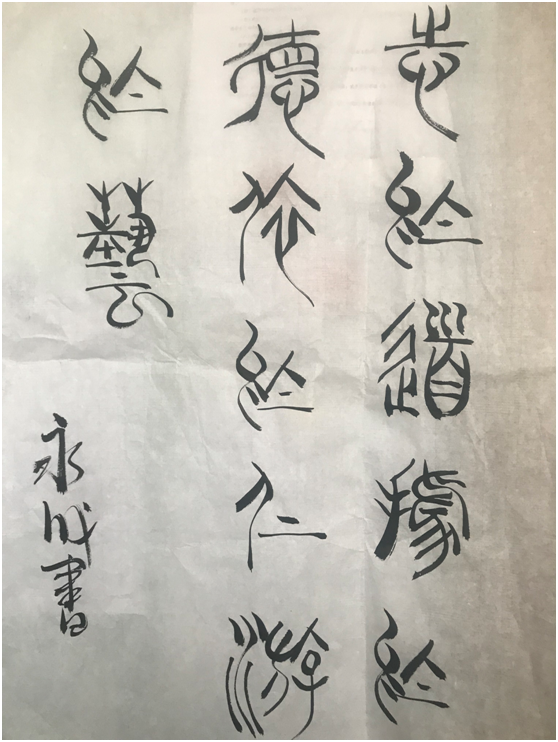 志於道據於
德依於仁游
於藝
永成書